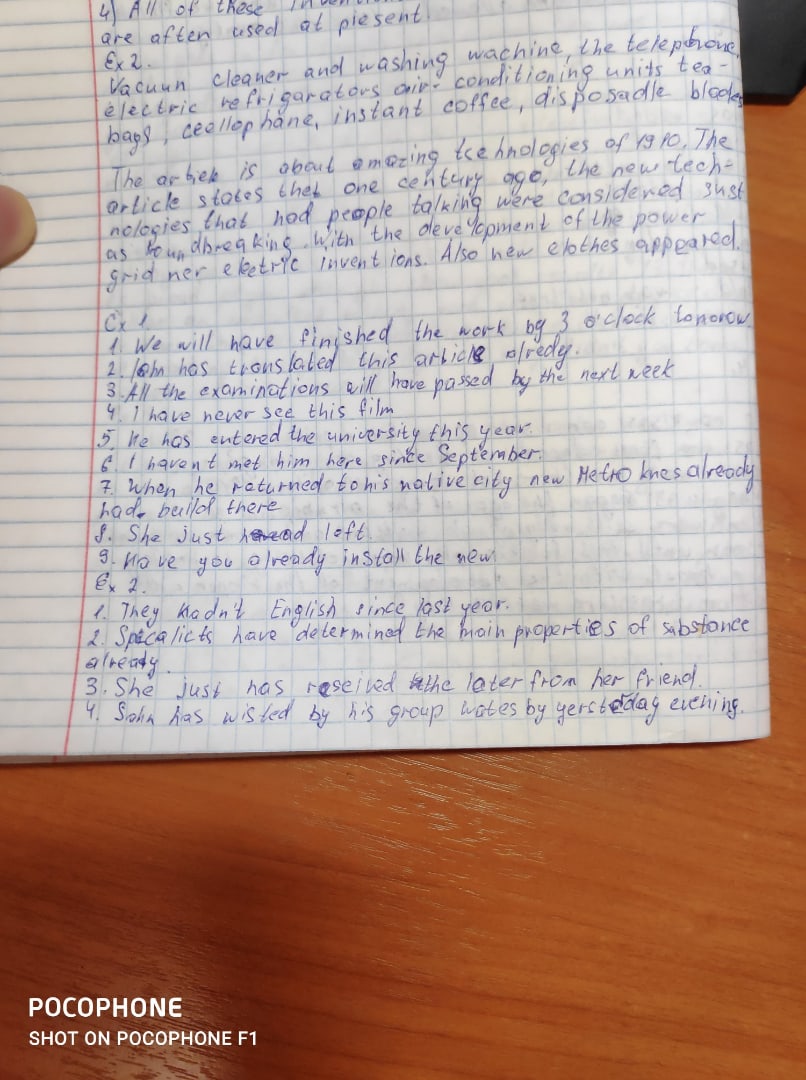 4) All of these
are often used at present
Ex 2.
Vacuun cleaner and washing wachine, the telephone,
electric refrigarators air-conditioning units tea-
bags, ceellophane, instant coffee, disposadle blades
The artick is about amazing tcehnologies of 1910. The
article states thet one century ago, the new tech-
nologies that had people talking were considered just
as roundbreaking. With the development of the power
grid ner ekctric invent ions. Also new clothes appeared.
Ex 1
1. We will have finished the work by 3 o'clock tomorow
2. John has translated this article alredy.
3. All the examinations will have passed by the next week
4. I have never see this film
5. He has entered the university this year.
6. I haven't met him here since September.
7. When he returned to his native city new Metro lines already
had build there
8. She just had left.
9. Have you already install the new
Ex 2.
1. They hadn't English since last year.
2. Spicalicts have determined the main properties of substance
already.
3. She just has reseived the later from her friend.
4. has wisted by his group wates by yersteday evening.
POCOPHONE
SHOT ON POCOPHONE F1